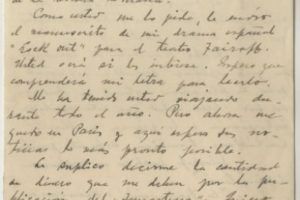 Como usted me lo pide, le envío
el manuscrito de mi drama español
para el teatro
Usted verá si le interesa. Espero que
comprenderá mi letra para leerlo.
Me ha tenido usted viajando du-
rante todo el año. Pero ahora me
quedo en París y aquí espero sus no-
ticias lo más pronto posible.
Le suplico decirme la cantidad
de dinero que me deben por la pu-
blicación del